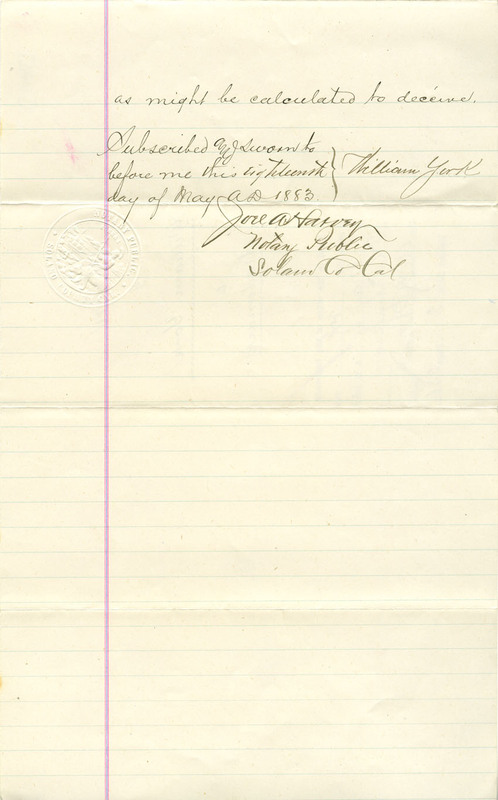 as might be calculated to deceive.
Subscribed & Sworn to
before me this eighteenth
day of May A.D 1883.
William York
Joel A Harvey
Notary Public
Solano Co Cal